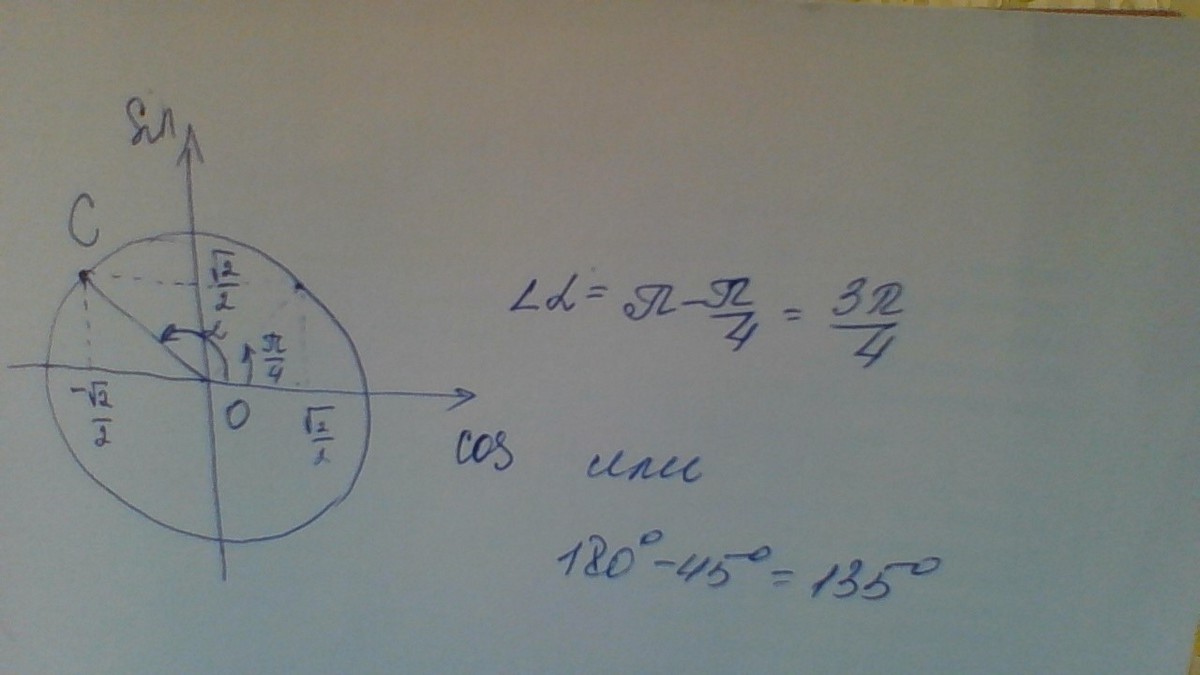 sin
C
√2/2
α
π/4
-√2/2
O
√2/2
cos
∠α = π - π/4 = 3π/4
или
180° - 45° = 135°